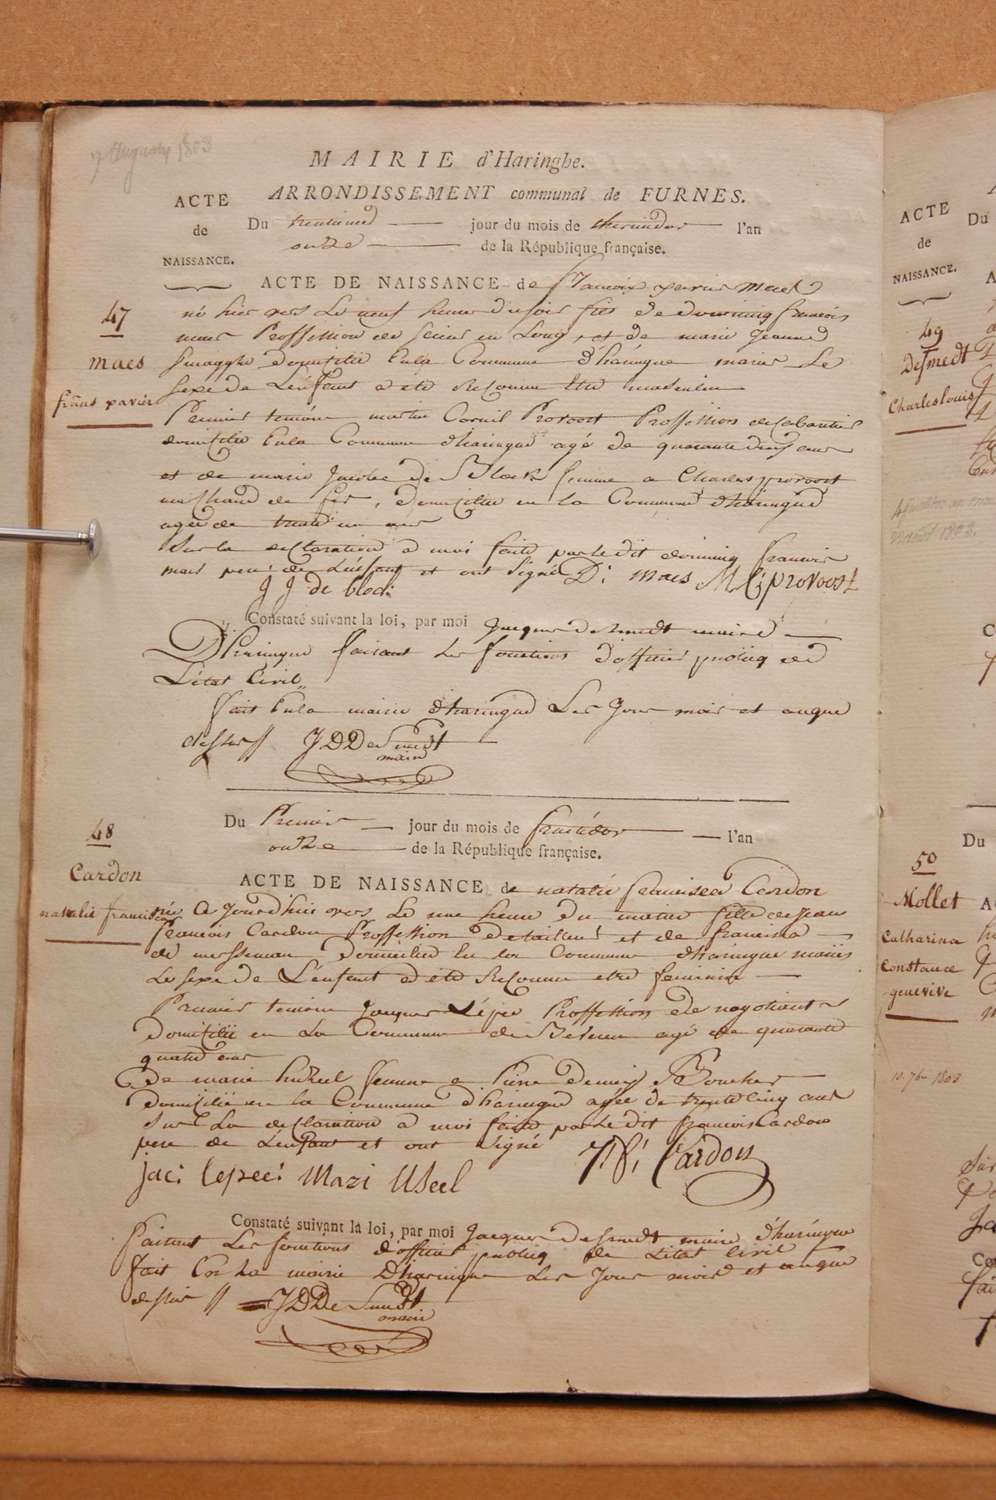 MAIRIE d'Haringhe.
ARRONDISSEMENT communal de FURNES.
ACTE
de
NAISSANCE.
Du jour du mois de thermidor l'an
onze de la République française.
ACTE DE NAISSANCE de francois xavier maes
47
maes
frans xavier
né hier vers Le neuf heure du soir fils de dominiq francois
maes Proffession de et de marie Jeanne
domicilie Enla Commune d'haringue mariés Le
sexe de L'enfant a été Reconnu Etre masculin
Premier temoin martin Cornil Provoost Proffession de cabartier
domicilie Enla Commune d'haringue agé de quarante ans
et de marie Jacobe de Block femme a Charles provoost
marchand de fer, domicilie en La Commune d'haringue
agée de trente un ans
Sur la declaration a moi faite par Le dit dominiq francois
maes pere de L'enfant et ont Signé D: maes M C: provoost
J J de block
Constaté suivant la loi, par moi Jacques De Smedt maire
D'haringue faisant Les fonctions d'officier publiq de
L'état Civil
fait Enla mairie d'haringue Les Jour mois et an que
dessus // J D De Smedt
maire
48
Cardon
natalie francisca
Du Premier jour du mois de fructidor l'an
onze de la République française.
ACTE DE NAISSANCE de natalie francisca Cardon
née a Jourd'hui vers Le une heure du matin fille de Jean
francois Cardon Proffession de tailleur et de francisca
de messeman domicilié En La Commune d'haringue mariés
Le sexe de L'enfant a été Reconnu etre feminin
Premier temoin Jacques Lépée Proffession de negotiant
Domicilié en La Commune de agé de quarante
quatre ans
Et de marie femme a Pierre
domicilié en La Commune d'haringue agée de trente cinq ans
Sur La declaration a moi faite par Le dit francois Cardon
pere de L'enfant et ont signé
jac: lepee: Mari Useel Cardon
Constaté suivant la loi, par moi Jacques De Smedt maire d'haringue
faisant Les fonctions d'officier publiq de L'état Civil
fait En La mairie D'haringue Les Jour mois et an que
dessus // J D De Smedt
maire
ACTE
de
NAISSANCE.
Du
49
Desmedt
Charles louis
Du
50
Mollet
Catharina
Constance
genevive
10. 7bre 1803